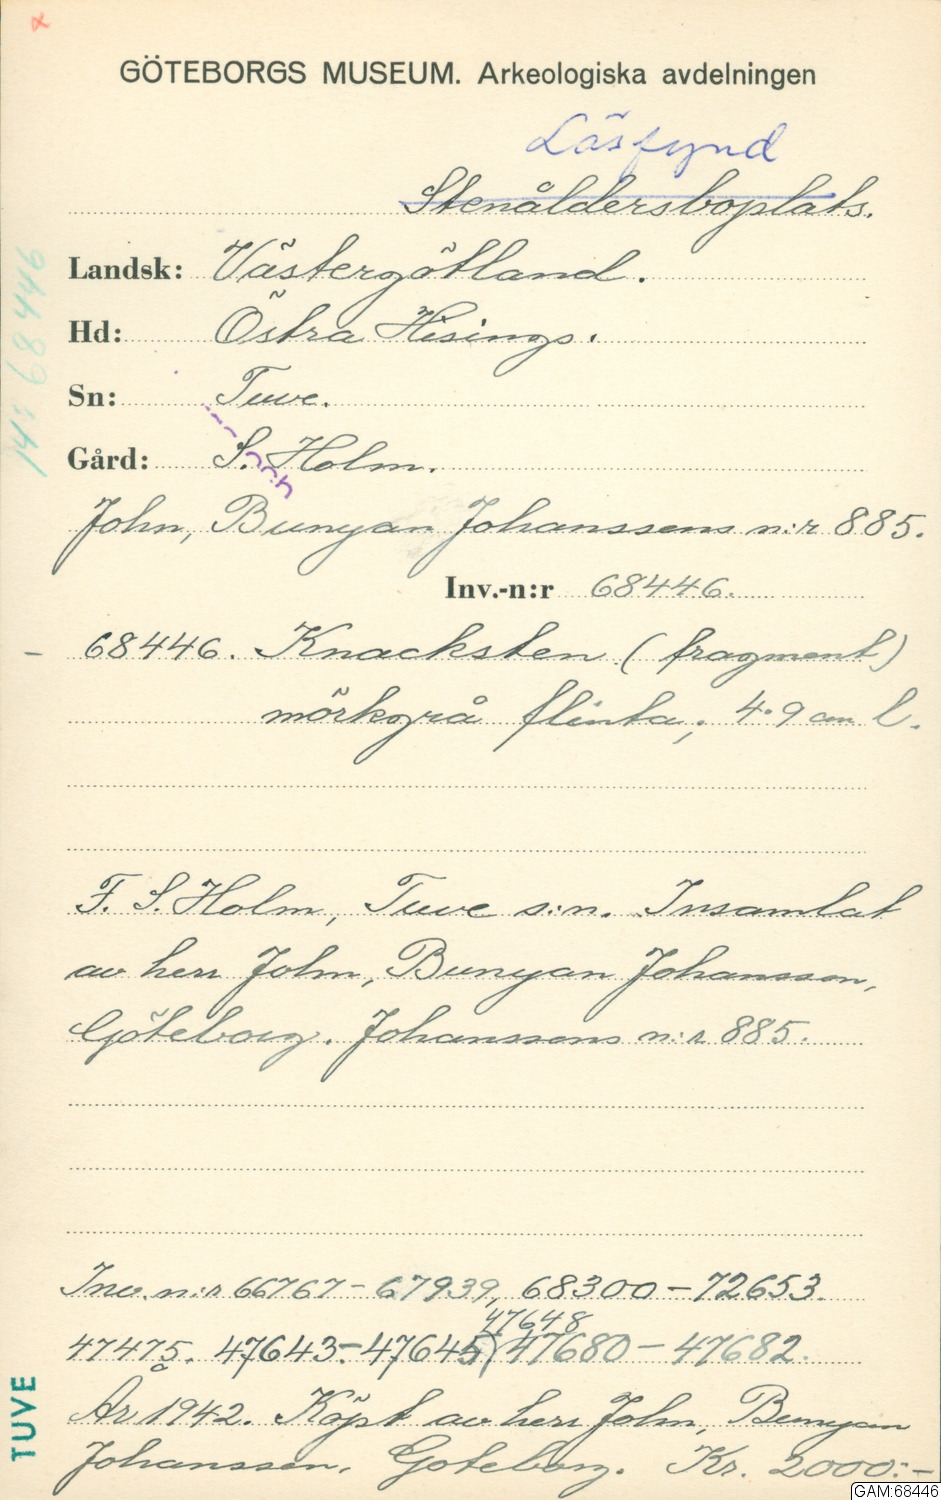 GÖTEBORGS MUSEUM. Arkeologiska avdelningen
Lösfynd
Stenåldersboplats.
Landsk: Västergötland.
Hd: Östra Hisings.
Sn: Tuve.
Gård: S. Holm.
John, Bunyan Johanssons n:r 885.
Inv.-n:r 68446.
68446. Knacksten (fragment)
mörkgrå flinta; 4.9 cm l.
F. S. Holm, Tuve s:n. Insamlat
av herr John, Bunyan Johansson,
Göteborg. Johanssons n:r 885.
Inv. n:r 66767-67939, 68300-72653.
47648
47475. 47643-47645, 47680-47682.
År 1942. Köpt av herr John, Bunyan
Johansson, Göteborg. Kr. 2000:-
14: 68446
TUVE
GAM:68446